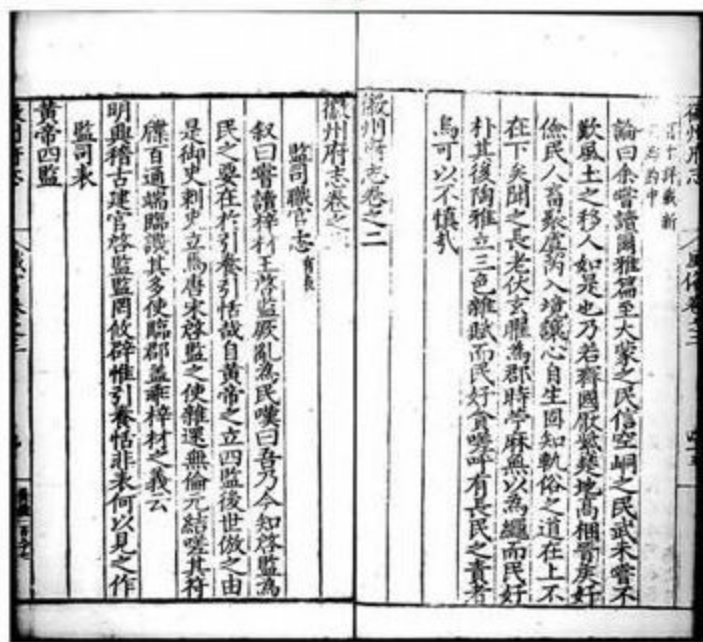 徽州府志
風俗卷之二
論曰余嘗讀爾雅篇至大蒙之民信空峒之民武未嘗不
歎風土之移人如是也乃若齊國厭紫楚地高梱晉矦好
儉民人畜聚虞芮入境讓心自生固知軌俗之道在上不
在下矣聞之長老伏玄曜為郡時苧麻無以為繩而民好
朴其後陶雅立三色雜賦而民好貪嗟吁有長民之責者
烏可以不慎哉
徽州府志卷之二
徽州府志卷之
監司職官志
叙曰嘗讀梓材王啓監厥亂為民嘆曰吾乃今知啓監為
民之要在於引養引恬哉自黃帝之立四監後世倣之由
是御史刺史立焉唐宋啓監之使雜遝無倫元結嗟其符
牒百通端臨譏其多使臨郡蓋乖梓材之義云
明興稽古建官啓監監罔攸辟惟引養恬非表何以見之作
監司表
黃帝四監